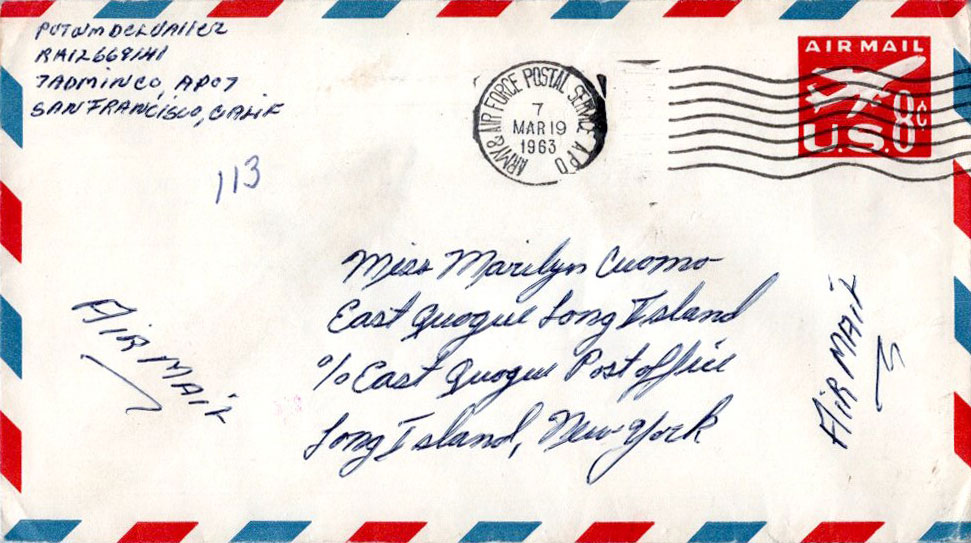 PVT W M DELVALLEE
RA12668141
7ADMINCO, APO7
SANFRANCISCO, CALIF
113
ARMY & AIR FORCE POSTAL SERVICE APO
7
MAR 19
1963
AIR MAIL
U.S. 8¢
Miss Marilyn Cuomo
East Quogue Long Island
c/o East Quogue Post office
Long Island, New York
AIR MAIL
AIR MAIL